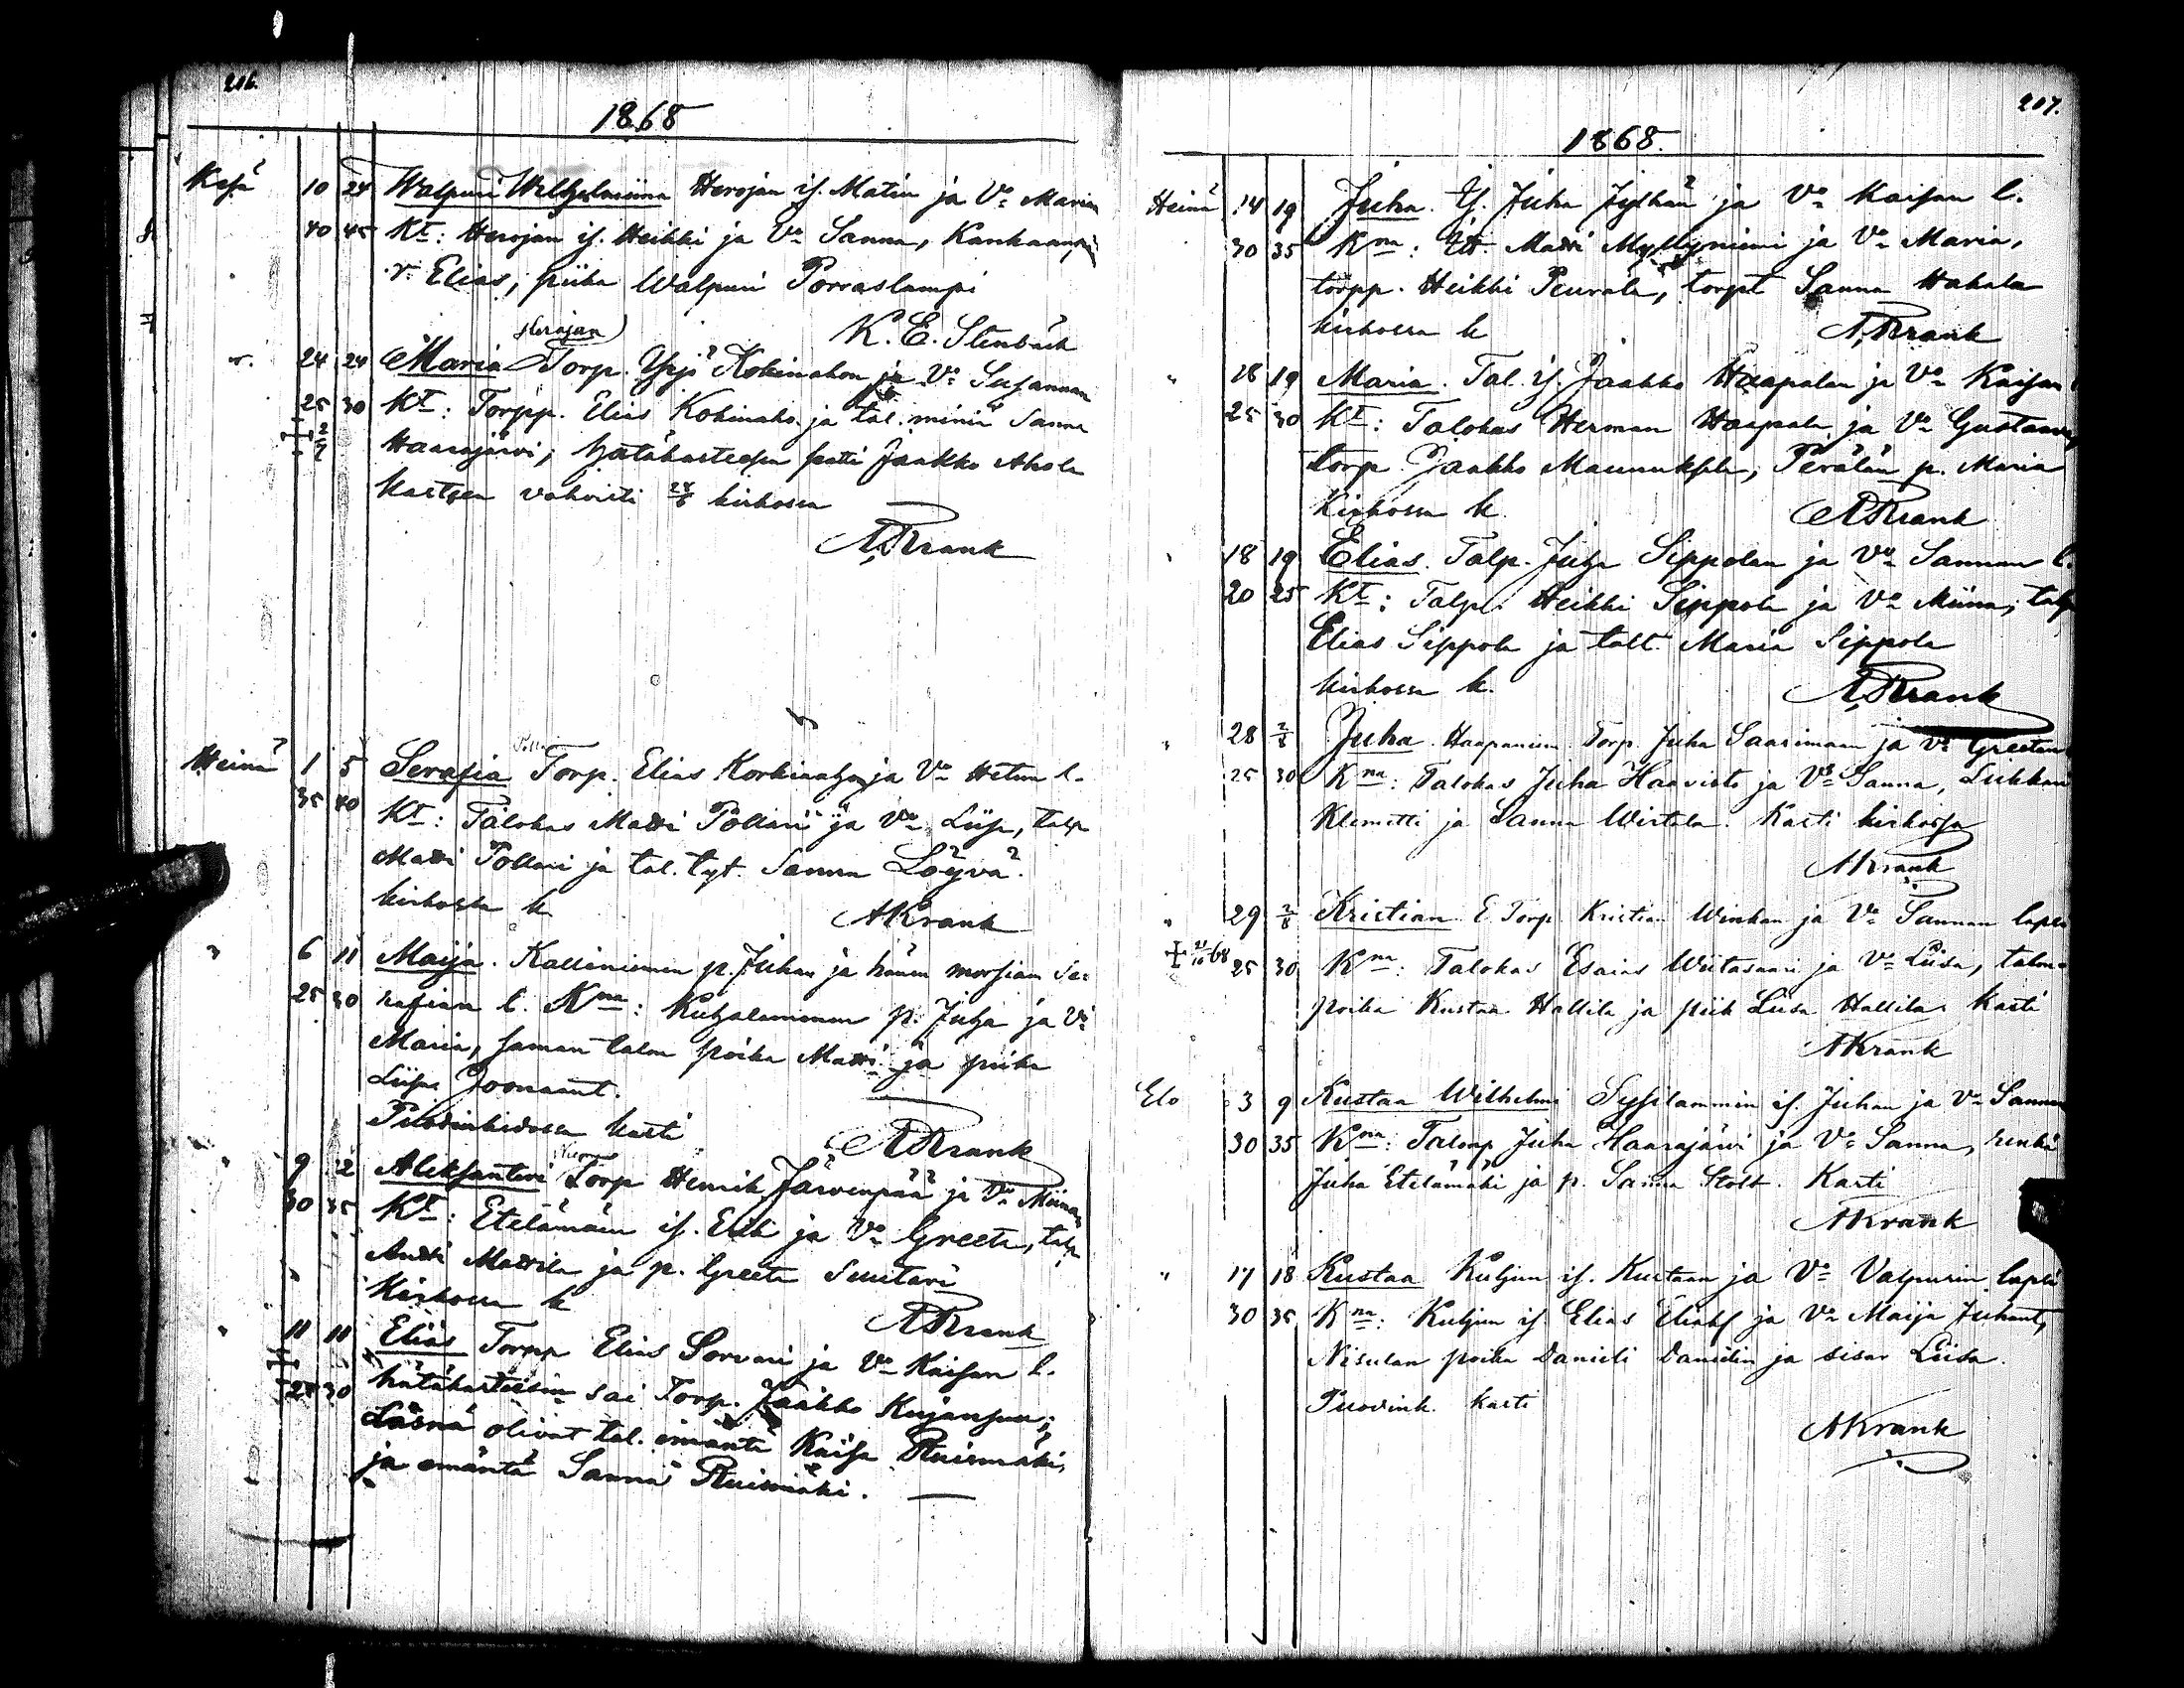 216.
1868
Kesä 10 24 Walpuri Wilhelmiina Herojan is. Matin ja Vo Marian
40 45 Kt: Herojan is. Heikki ja Vo Sanna, Kankaanpää
r. Elias, piika Walpuri Porraslampi
K. E. Stenbäck
Herajan
24 24 Maria Torp. Yrjö Kokinahon ja Vo Susannan
25 30 Kt: Torpp. Elias Kokinaho ja tal. miniä Sanna
Haarajärvi; hätäkasteesen Jaakko Ahola
Kasteen vahvisti 24/6 kirkossa
A Krank
Heinä 1 5 Serafia Torp. Elias Korkiaahon ja Vo Hetun l.
35 40 Kt: Talokas Matti Pollari ja Vo Liisa, talp
Matti Pollari ja tal. tyt. Sanna Löyvä.
kirkossa k
A Krank
6 11 Maija. Kallioniemen p. Juhan ja hänen morsian Se-
25 30 rafian l. Kna: Kuhalammen p. Juha ja Vo
Maria, saman talon poika Matti ja piika
Liisa Joonaant.
kasti
A Krank
9 12 Aleksanteri Torp Henrik Järvenpää ja Vo Miinan
30 35 Kt: Etelämäen is. Erik ja Vo Greeta, talp
Antti Mattila ja p. Greeta Suutari
Kirkossa k
A Krank
11 11 Elias Torpp Elias Sorvari ja Vo Kaisan l.
25 30 hätäkasteesin sai Torp. Jaakko Kujansuu;
Läsnä olivat tal. emäntä Kaisa Ruismäki,
ja emäntä Sanna Ruismäki.
207.
1868.
Heinä 14 19 Juha. Is. Juha Jylhän ja Vo Kaisan l.
30 35 Kna: Matti Myllyniemi ja Vo Maria,
torpp. Heikki Peurala, torpt Sanna Hakala
kirkossa k
A Krank
" 18 19 Maria. Tal. is. Jaakko Haapalan ja Vo Kaisan
25 30 Kt: Talokas Herman Haapala ja Vo Gustaava,
torp Jaakko Maunuksela, Perälän p. Maria
Kirkossa k.
A Krank
18 19 Elias. Talp. Juha Sippolan ja Vo Sannan l.
20 25 Kt: Talp. Heikki Sippola ja Vo Miina, talp
Elias Sippola ja talt. Maria Sippola
kirkossa k.
A Krank
" 28 2/8 Juha. Haapaniem. Torp. Juha Saarimaan ja Vo Greetan
25 30 Kna: Talokas Juha Haavisto ja Vo Sanna, Liukkaan
Klemetti ja Sanna Wirtala. Kasti kirkossa
A Krank
" 29 2/8 Kristian E. Torp. Kristian Winkan ja Vo Sannan lapsi
25 30 Kna: Talokas Esaias Wiitasaari ja Vo Liisa, talon-
poika Kustaa Hallila ja piik Liisa Hallila Kasti
A Krank
Elo 3 9 Kustaa Wilhelmi Sysilammin is. Juhan ja Vo Sannan
30 35 Kna: Talonp Juha Haarajärvi ja Vo Sanna, renki
Juha Etelämäki ja p. Sanna Stolt. Kasti
A Krank
" 17 18 Kustaa Kuljun is. Kustaan ja Vo Valpurin lapsi
30 35 Kna: Kuljun is. Elias Eliaks ja Vo Maija Juhant,
Nisulan poika Danieli Danielin ja sisar Liisa.
kasti
A Krank